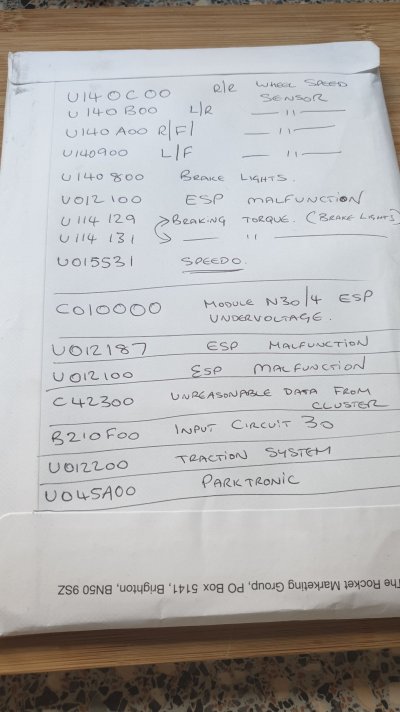 U140C00 R/R WHEEL SPEED
SENSOR
U140B00 L/R — " —
U140A00 R/F/ — " —
U140900 L/F — " —
U140800 BRAKE LIGHTS.
U012100 ESP MALFUNCTION
U114129 > BRAKING TORQUE. (BRAKE LIGHTS)
U114131 — " —
U015531 SPEEDO.
C010000 MODULE N30/4 ESP
UNDERVOLTAGE.
U012187 ESP MALFUNCTION
U012100 ESP MALFUNCTION
C42300 UNREASONABLE DATA FROM
CLUSTER
B210F00 INPUT CIRCUIT 30
U012200 TRACTION SYSTEM
U045A00 PARKTRONIC
The Rocket Marketing Group, PO Box 5141, Brighton, BN50 9SZ